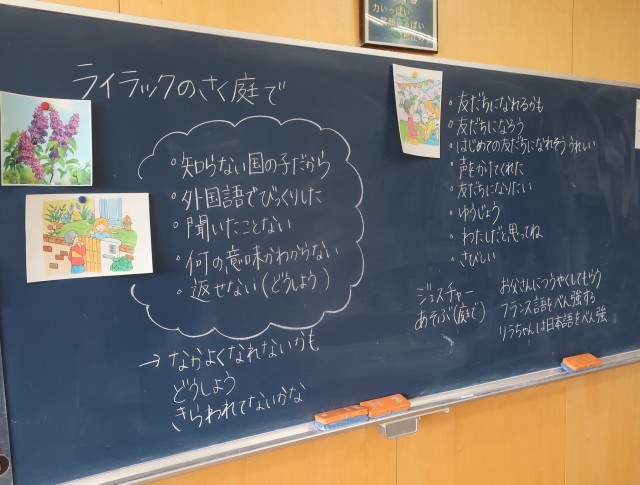 力いっぱい
ライラックのさく庭で
・知らない国の子だから
・外国語でびっくりした
・聞いたことない
・何の意味かわからない
・返せない(どうしよう)
→なかよくなれないかも
どうしよう
きらわれてないかな
・友だちになれるかも
・友だちになろう
・はじめての友だちになれそう うれしい
・声をかけてくれた
・友だちになりたい
・ゆうじょう
・わたしだと思ってね
・さびしい
ジェスチャー
あそぶ(庭で)
お父さんにつうやくしてもらう
フランス語をべん強する
リラちゃんは日本語をべん強